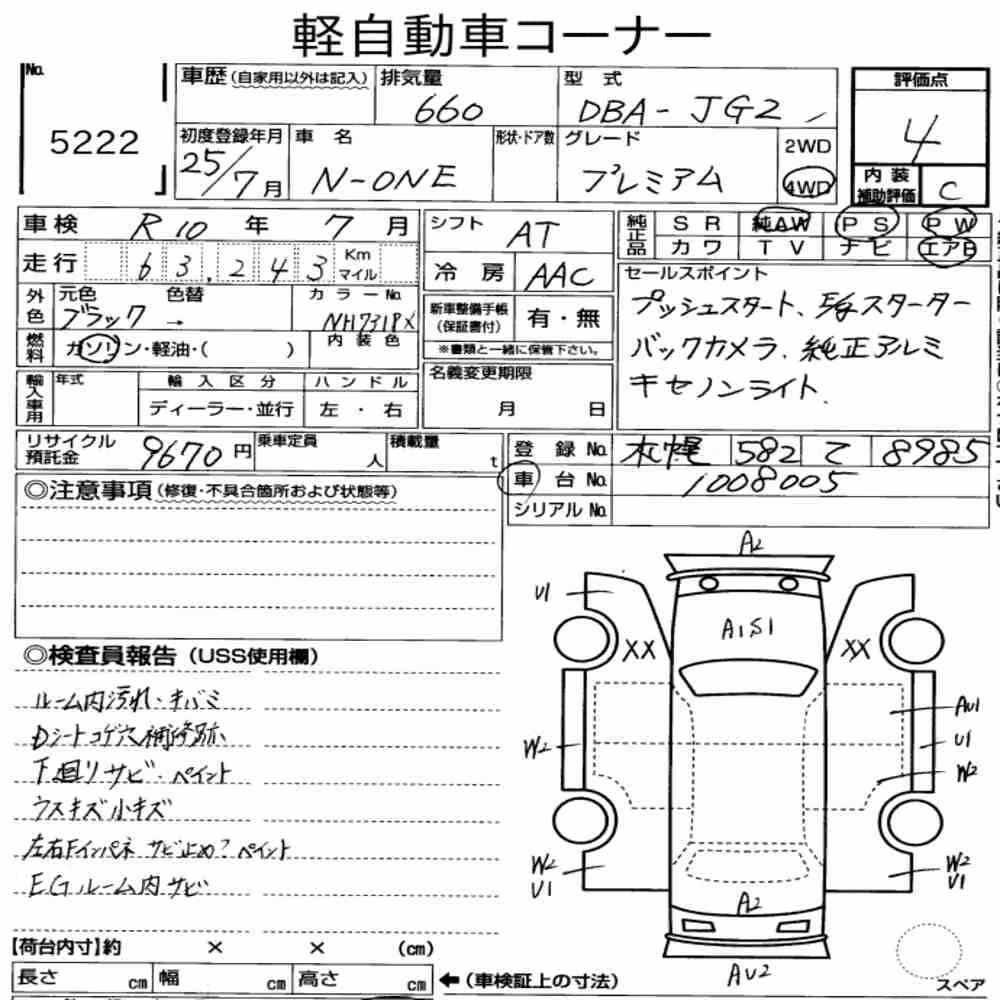 軽自動車コーナー
No. 5222
車歴(自家用以外は記入)
排気量 660
型式 DBA-JG2
評価点 4
初度登録年月 25/7月
車名 N-ONE
形状・ドア数
グレード プレミアム
2WD
4WD
内装補助評価 C
車検 R10年 7月
走行 63,243 Km マイル
外色 元色 ブラック → 色替
カラーNo. NH731PX
燃料 ガソリン・軽油・( )
内装色
輸入車用 年式
輸入区分 ディーラー・並行
ハンドル 左・右
シフト AT
冷房 AAC
新車整備手帳(保証書付) 有・無
※書類と一緒に保管下さい。
名義変更期限 月 日
純正品 SR 純AW PS PW
カワ TV ナビ エアB
セールスポイント
プッシュスタート、E/gスターター
バックカメラ、純正アルミ
キセノンライト.
リサイクル預託金 9670円
乗車定員 人
積載量 t
登録No. 札幌 582 て 8985
車台No. 1008005
シリアルNo.
◎注意事項(修復・不具合箇所および状態等)
◎検査員報告(USS使用欄)
ルーム内汚れ・キバミ
Dシートコゲ穴補修跡
下廻りサビ・ペイント
ウスキズ小キズ
左右Fインパネ サビ止め?ペイント
EGルーム内サビ
A2
U1
A1S1
XX
XX
AU1
W2
U1
W2
W2
U1
W2
U1
A2
AU2
【荷台内寸】約 × × (cm)
長さ cm 幅 cm 高さ cm
←(車検証上の寸法)
スペア